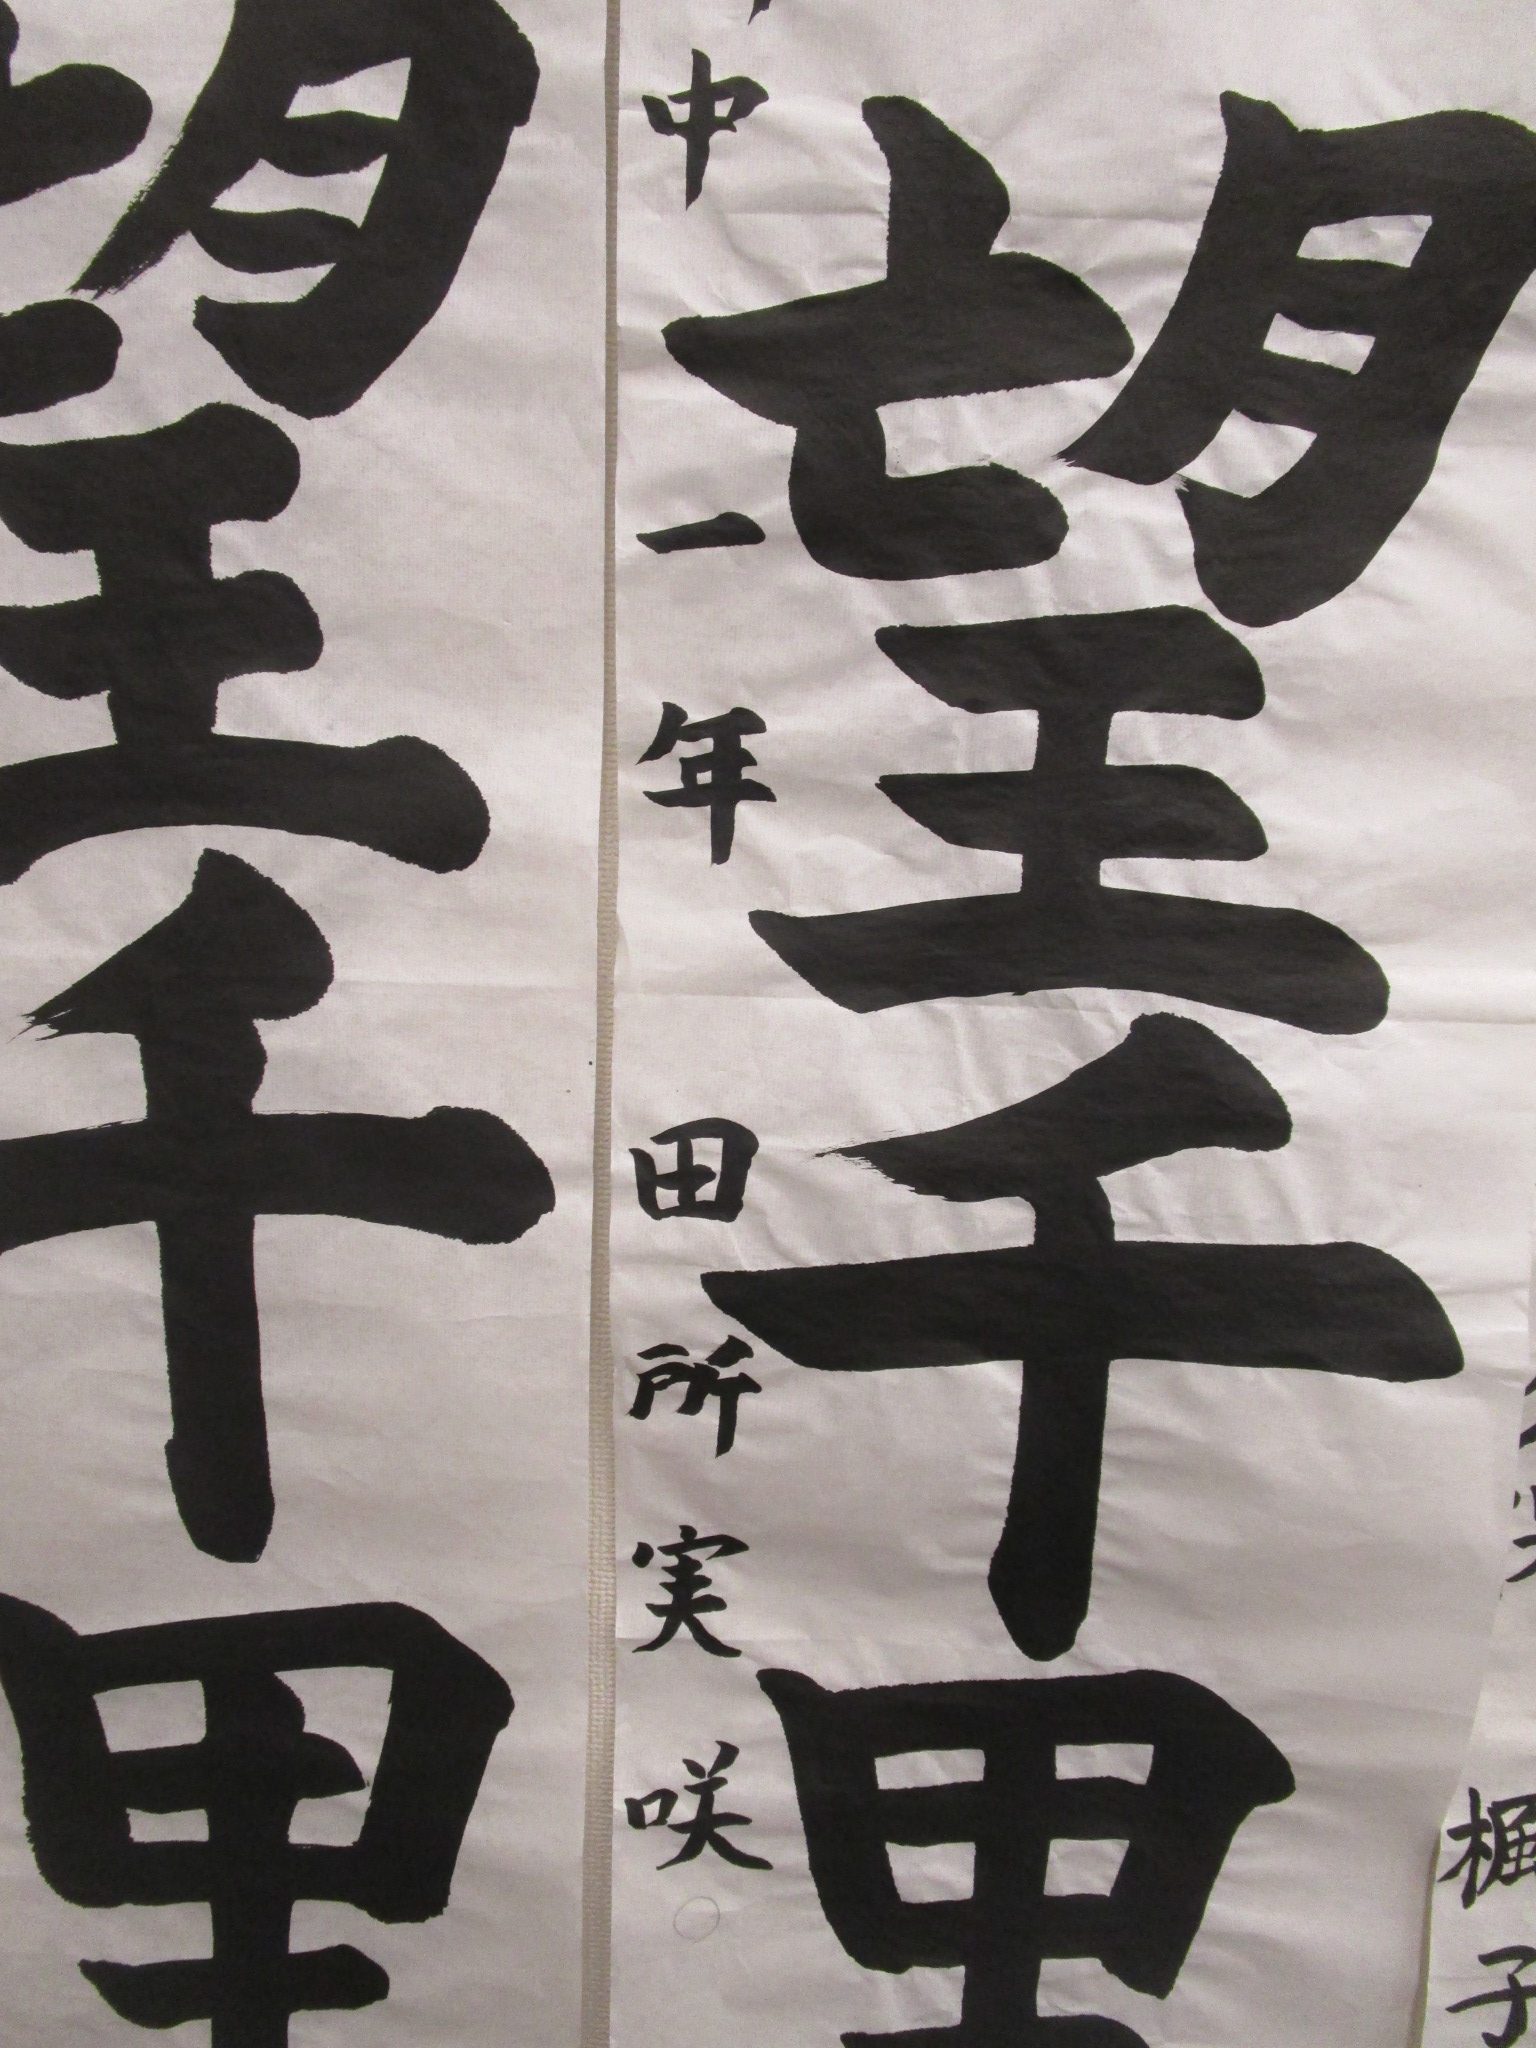 望千里
中一年 田所実咲
望千里
子